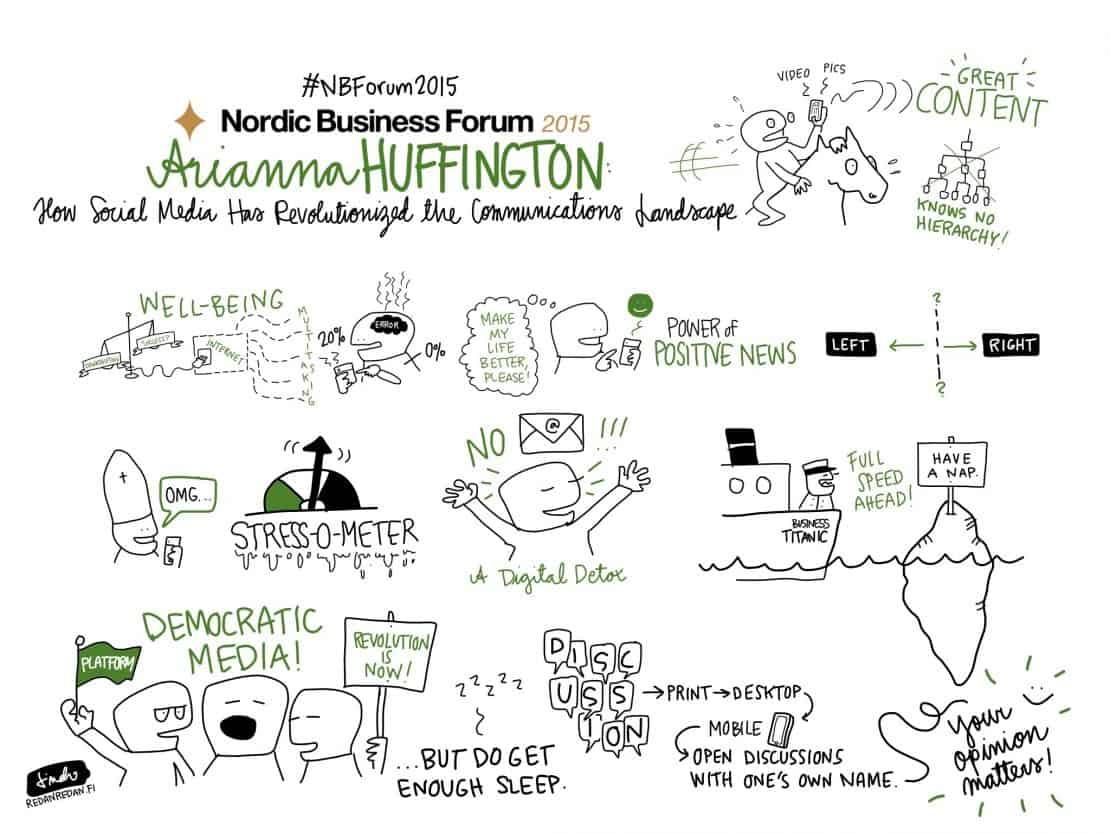 #NBForum2015
Nordic Business Forum 2015
Arianna HUFFINGTON:
How Social Media Has Revolutionized the Communications Landscape
VIDEO PICS
GREAT
CONTENT
KNOWS NO
HIERARCHY!
WELL-BEING
INTERNET
MULTITASKING
20%
ERROR
0%
MAKE
MY
LIFE
BETTER,
PLEASE!
POWER of
POSITIVE NEWS
?
LEFT
RIGHT
?
OMG...
STRESS-O-METER
NO @ !!!
A Digital Detox
BUSINESS
TITANIC
FULL
SPEED
AHEAD!
HAVE
A NAP.
DEMOCRATIC
MEDIA!
PLATFORM
REVOLUTION
IS
NOW!
ZZZZZ
...BUT DO GET
ENOUGH SLEEP.
DISC
USS
ION
PRINT DESKTOP
MOBILE
OPEN DISCUSSIONS
WITH ONE'S OWN NAME.
Your
opinion
matters!
REDANREDAN.FI